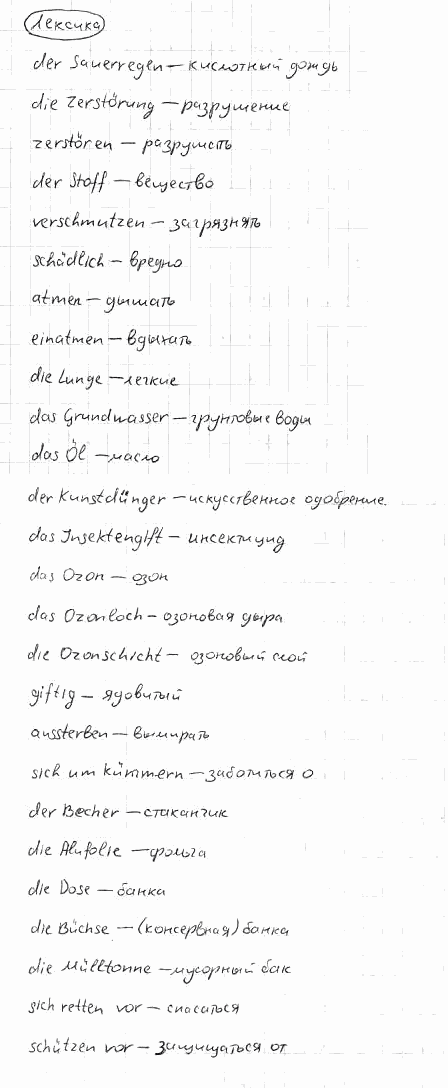 Лексика
der Sauerregen — кислотный дождь
die Zerstörung — разрушение
zerstören — разрушать
der Stoff — вещество
verschmutzen — загрязнять
schädlich — вредно
atmen — дышать
einatmen — вдыхать
die Lunge — легкие
das Grundwasser — грунтовые воды
das Öl — масло
der Kunstdünger — искусственное удобрение.
das Insektengift — инсектицид
das Ozon — озон
das Ozonloch — озоновая дыра
die Ozonschicht — озоновый слой
giftig — ядовитый
aussterben — вымирать
sich um kümmern — заботиться о
der Becher — стаканчик
die Alufolie — фольга
die Dose — банка
die Büchse — (консервная) банка
die Mülltonne — мусорный бак
sich retten vor — спасаться
schützen vor — защищаться от